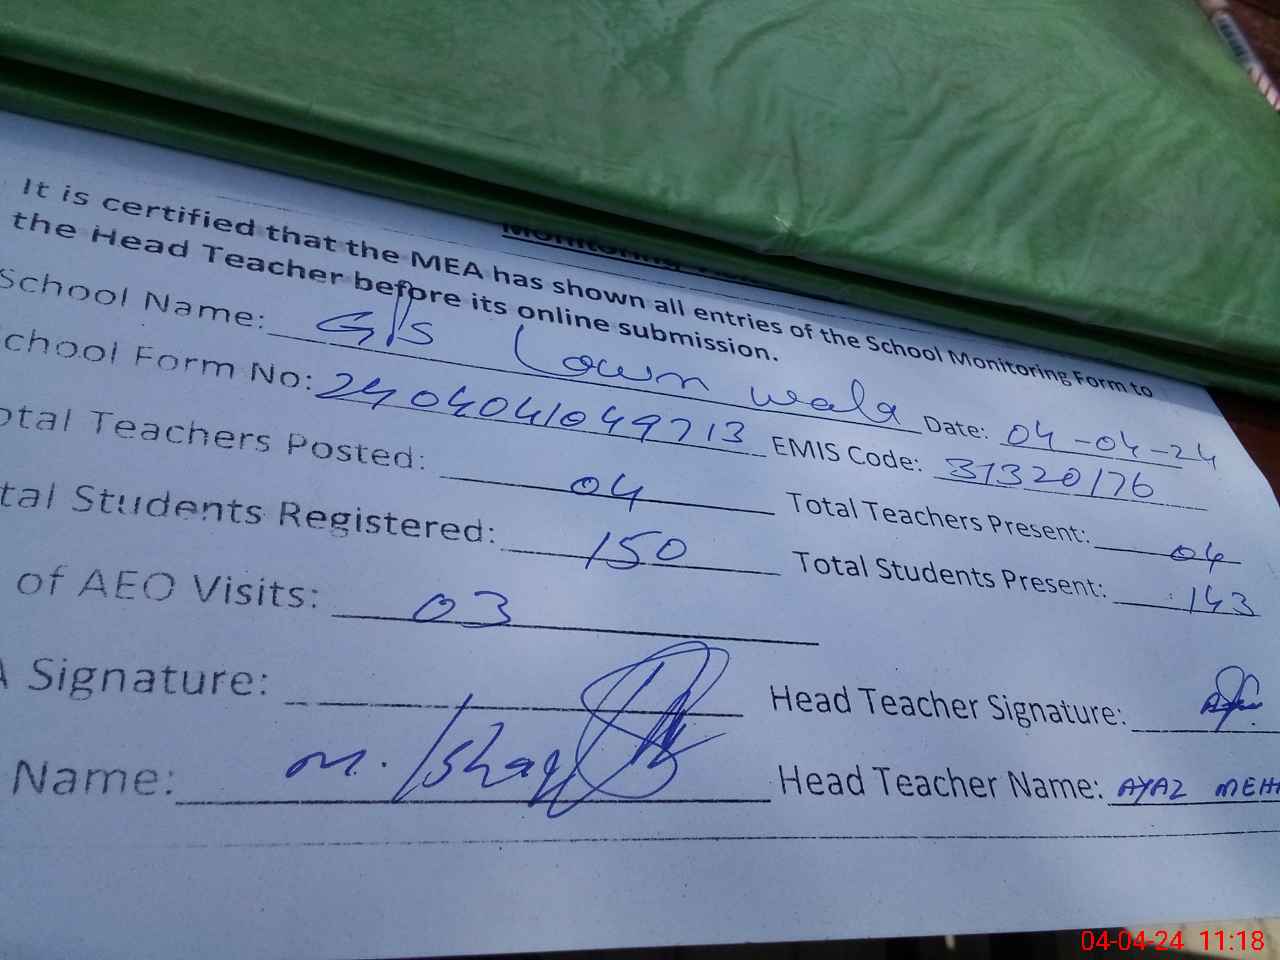 It is certified that the MEA has shown all entries of the School Monitoring Form to
the Head Teacher before its online submission.
School Name: G/P/S Lown wala Date: 04-04-24
chool Form No: 2404041049713 EMIS Code: 31320176
otal Teachers Posted: 04 Total Teachers Present: 04
tal Students Registered: 150 Total Students Present: 143
of AEO Visits: 03
A Signature: Head Teacher Signature:
Name: M. Ishaq Head Teacher Name: AYAZ MEH
04-04-24 11:18